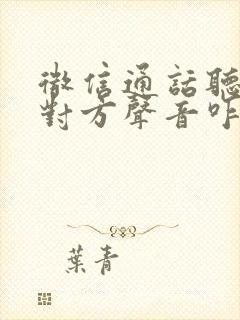 微信通話聽
對方聲音咋
葉青